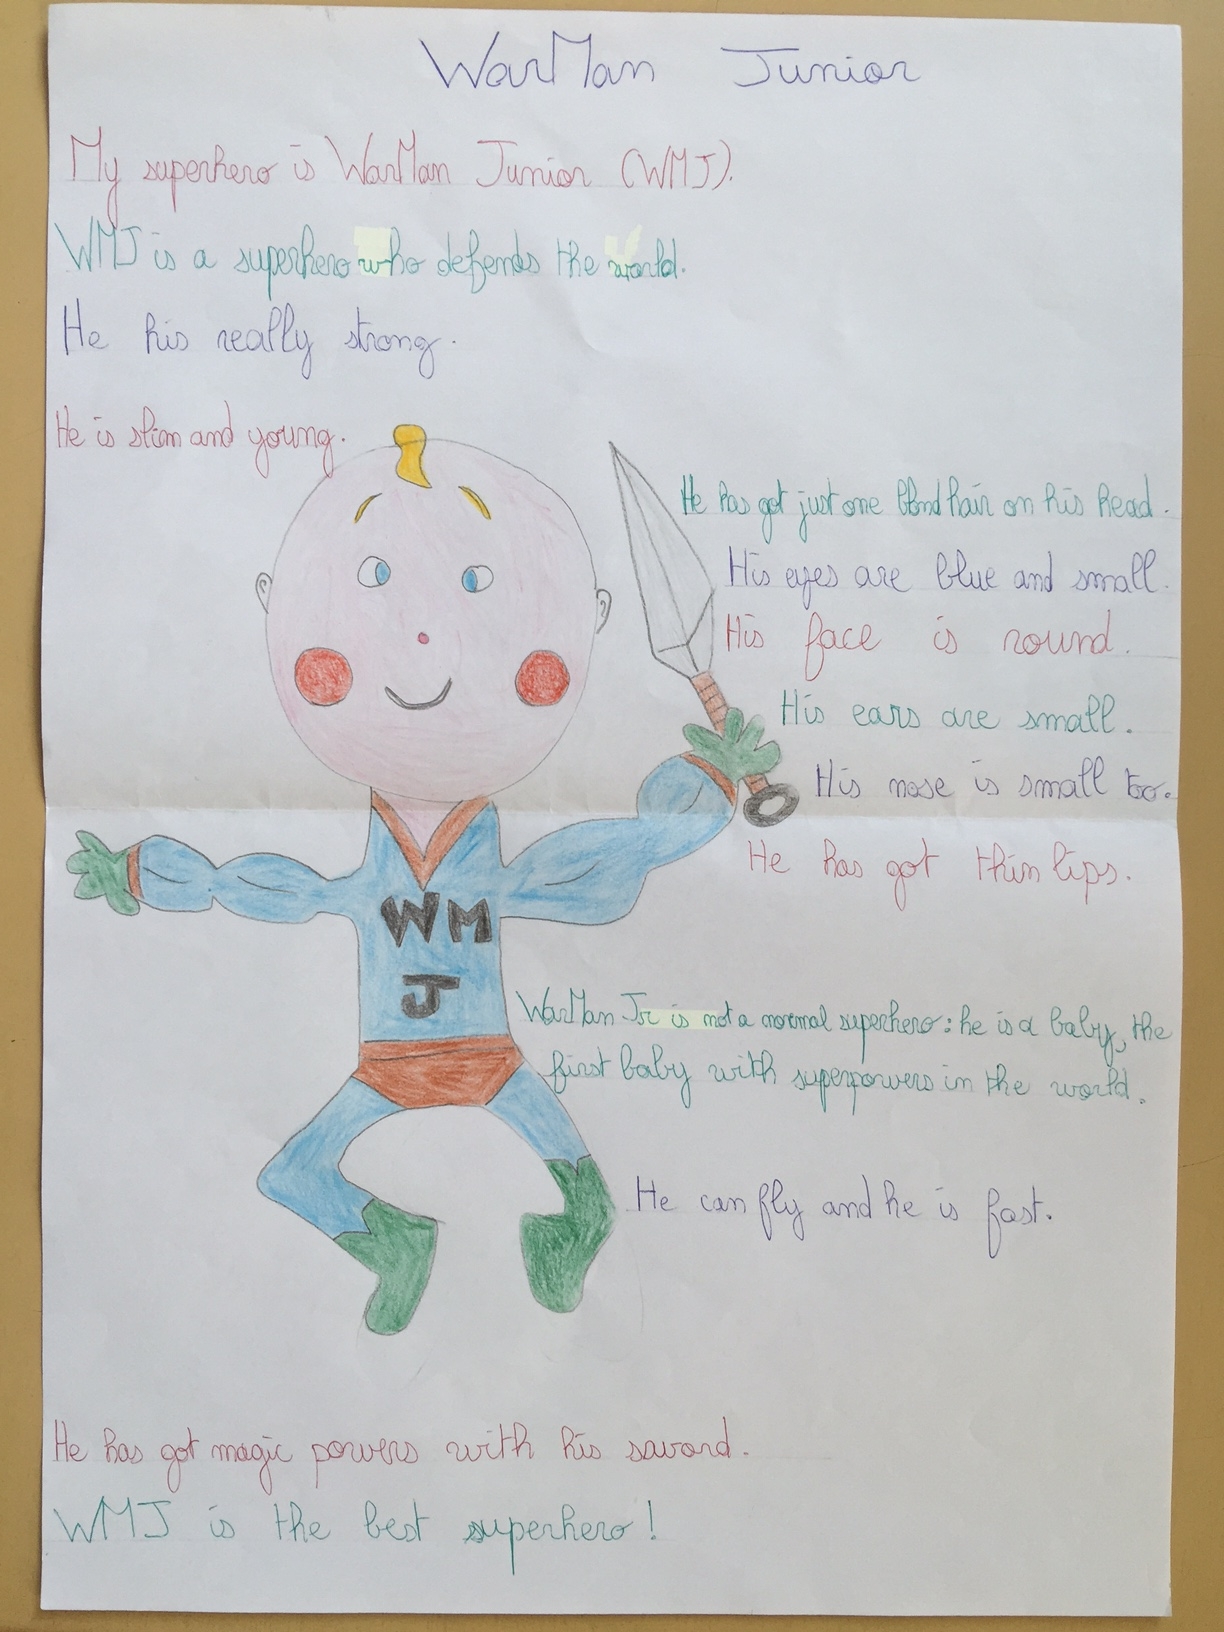 WarMan Junior
My superhero is WarMan Junior (WMJ).
WMJ is a superhero who defends the world.
He his really strong.
He is slim and young.
He has got just one blond hair on his head.
His eyes are blue and small.
His face is round.
His ears are small.
His nose is small too.
He has got thin lips.
WM
J
WarMan Jr is not a normal superhero: he is a baby, the
first baby with superpowers in the world.
He can fly and he is fast.
He has got magic powers with his sword.
WMJ is the best superhero!